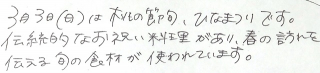 3月3日(日)は桃の節句、ひなまつりです。
伝統的なお祝い料理があり、春の訪れを
伝える旬の食材が使われています。